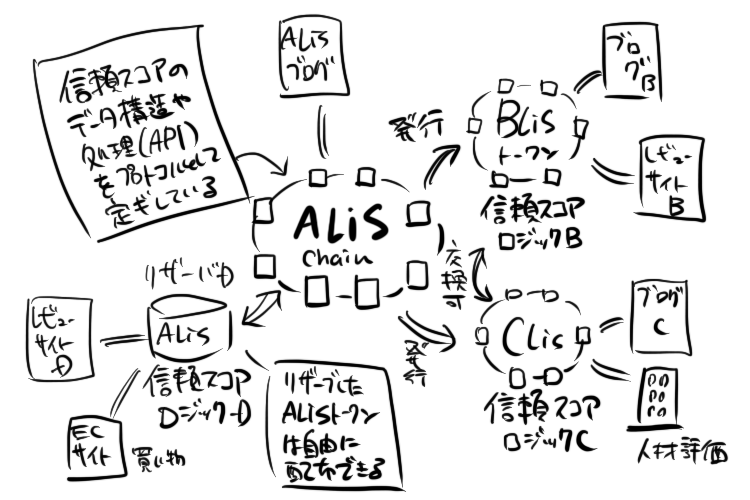 信頼スコアの
データ構造や
処理(API)
をプロトコルとして
定ギしている
ALiS
ブログ
ALiS
chain
発行
BLiS
トークン
信頼スコア
ロジックB
ブロ
グB
レビュー
サイト
B
交換可
発行
CLis
信頼スコア
ロジックC
ブログ
C
人材評価
リザーバD
ALiS
信頼スコア
ロジックD
レビュー
サイト
D
EC
サイト
買い物
リザーブした
ALISトークン
は自由に
配布できる